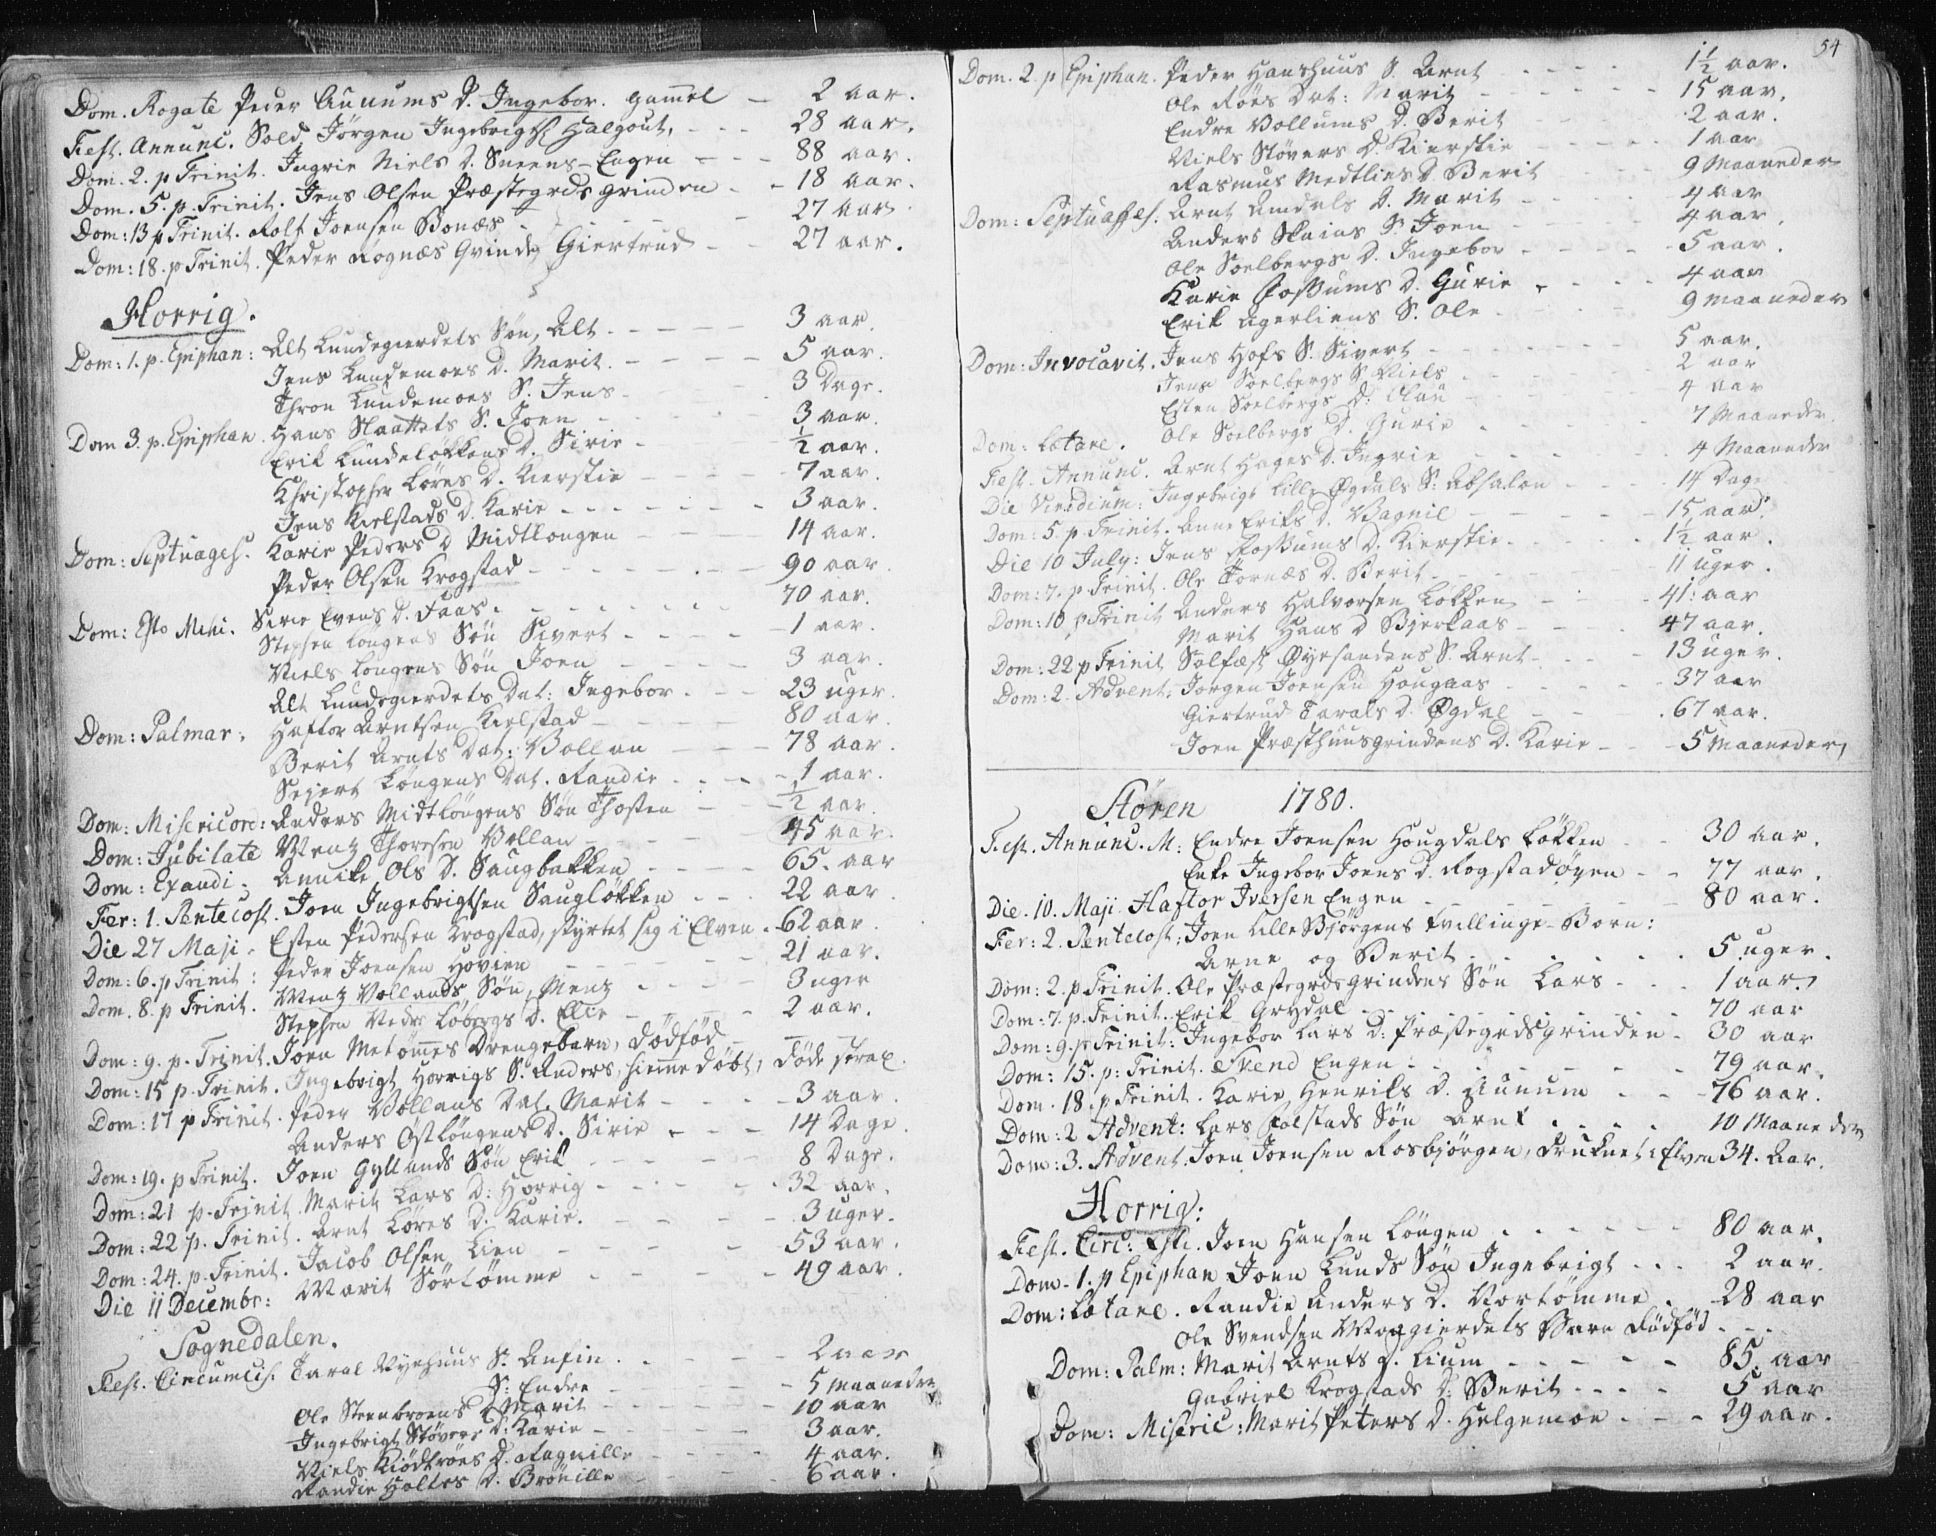 Dom. Rogate Peder Aunums D. Ingebor. gamel — 2 aar.
Fest. Annunc. Sold. Jörgen Ingebrigts. Halgout, - - - 28 aar.
Dom. 2. p Trinit. Ingrie Niels D. Sneens-Engen - - - 88 aar.
Dom. 5. p. Trinit. Jens Olsen Præstegrds grinden - - 18 aar.
Dom: 13 p Trinit. Rolf Joensen Bonæs - 27 aar
Dom: 18. p Trinit. Peder Rognæs Qvinde Giertrud - - 27 aar.
Horrig.
Dom: 1. p. Epiphan: Alt Lundegierdets Søn, Alt - - - - 3 aar.
Jens Lundemoes D. Marit. - - - - 5 aar.
Thron Lundemoes S. Jens - - - 3 Dage.
Dom 3. p. Epiphan. Hans Slaattets S. Joen - - - 3 aar.
Erik Lundeløkkens D. Sirie - ½ aar.
Christopher Løres D. Kierstie - - - 7 aar.
Jens Kielstads D. Karie - - - - - - 3 aar.
Dom: Septuages. Karie Peders D Midtlongen - - - - 14 aar.
Peder Olsen Krogstad - - - - - - - 90 aar.
Dom: Esto Mihi. Sirie Evens D. Faas. - - - - - - 70 aar.
Stephen Longens Søn Sivert - - - - - 1 aar.
Niels Longens Søn Joen - - - - 3 aar.
Alt Lundegierdets Dat: Ingebor. - - - 23 uger.
Dom: Palmar: Haftor Arntsen Kielstad - - - - 80 aar.
Berit Arnts Dat: Vollan - - - 78 aar.
Sejert Löngens Dat. Randie - - - - 1 aar.
Dom: Misericord: Anders Midtlöngens Søn Thosten - - ½ aar.
Dom: Jubilate Wentz Thoresen Vollan - - - - 45 aar.
Dom: Exaudi. Annike Ols D. Saugbakken - - - - 65. aar
Fer: 1. Pentecost. Joen Ingebrigtsen Saugløkken - - - 22 aar
Die 27 Maji. Esten Pedersen Krogstad, styrtet sig i Elven. - 62 aar.
Dom: 6. p Trinit: Peder Joensen Hovien - - - - - 21 aar.
Dom. 8. p Trinit. Wentz Vollands Søn, Mentz - - - - 3 uger
Stephen Vedes Løbergs D. Elie - - - - 2 aar.
Dom: 9. p. Trinit. Joen Metömes Drengebarn, Dödföd - - -
Dom: 15 p. Trinit. Ingebrigt Horrigs S. Anders, hieme döbt,
Dom: 17 p Trinit. Peder Vollans Dat. Marit - - - - 3 aar.
Anders Östlöngens D. Sirie - - - 14 Dage.
Dom: 19. p Trinit. Joen Gyllands Søn Erik - - - - 8 Dage.
Dom: 21 p. Trinit Marit Lars D: Horrig - - - - 32 aar.
Dom: 22 p. Trinit. Arnt Löres D. Karie. - - - - 3 uger.
Dom: 24. p. Trinit. Jacob Olsen Lien - - - - - 53 aar.
Die 11 Decembr: Marit Sörtömme - - - - - 49 aar.
Sognedalen.
Fest. Circumcis. Taral Nyehuus S. Anfin. - - - - 2 aar
S: Endre - - - - 5 Maaneder
Ole Steenbroens D Marit - - - - 10 aar
Ingebrigt Stövers D: Karie - - - - 3 aar.
Niels Kiödtröes D. Ragnille - - - 4 aar.
Randie Holtes D. Brönille - - - - 6 aar.
54
Dom. 2. p Epiphan. Peder Hanshuus S. Arnt - - - - 1½ aar.
Ole Røes Dat: Marit - - - - - 15 aar.
Endre Vollums D. Berit - - - 2 aar.
Niels Stövers D. Kierstie - - - - 1 aar
Rasmus Medtlies D Berit - - - 9 Maaneder
Dom: Septuages. Arnt Amdals D. Marit - - - - 4 aar
Anders Skaias S. Joen - - - - 4 aar.
Ole Soelbergs D. Ingebor - - - - 5 aar.
Karie Fossums D. Gurie - - - - 4 aar
Erik Agerliens S. Ole - - - - 9 maaneder
Dom: Invocavit. Jens Hofs S. Sivert - - - - - 5 aar.
Jens Soelbergs S. Niels - - - - 2 aar
Esten Soelbergs D: Olau - - - - 4 aar
Dom: Lætare. Ole Soelbergs D. Gurie - - - - 7 Maaneder
Fest. Annunc. Arnt Hages D. Ingrie - - - - 4 Maaneder
Die Viridium: Ingebrigt Lille Øgdals S: Absalon - - - 14 Dage
Dom: 5 p Trinit. Anne Eriks D. Bagnil - - - - - 15 aar.
Die 10 July: Jens Fossums D. Kierstie - - - - 1½ aar.
Dom: 7. p Trinit. Ole Tornæs D. Berit - - - - - 11 uger.
Dom: 10 p Trinit Anders Halvorsen Løkken - - - 41: aar
Marit Hans D Bjerkaas - - - - 47 aar.
Dom: 22 p Trinit Solfæst Øyesandens S. Arnt - - - 13 uger.
Dom: 2. Advent: Jorgen Joensen Hougaas - - - - 37 aar
Giertrud Tarals D. Øgdal - - . 67 aar.
Joen Præsthuusgrindens D. Karie - - - 5 Maaneder,
Støren 1780.
Fest. Annunc. M: Endre Joensen Hougdals Løkken - - 30 aar.
Enke Ingebor Joens D. Rogstadøyen - - 77 aar.
Die. 10. Maji. Haftor Iversen Engen - - - - - - 80 aar.
Fer: 2. Pentecost: Joen Lille Bjørgens Tvillinge-Born:
Arne og Berit - - - - - 5 uger.
Dom: 2. p Trinit. Ole Præstegrdsgrindens Søn Lars - - - 1 aar.
Dom: 7. p. Trinit. Erik Grydal - - - - - - - - 70 aar
Dom: 9. p Trinit: Ingebor Lars D: Præstegrdsgrinden - 30 aar
Dom: 15. p: Trinit. Svend Engen - - - - - - 79 aar.
Dom. 18. p Trinit. Karie Henriks D. Aunum - - - 76 aar.
Dom: 2 Advent: Lars Folstads Søn Arnt - - - - 10 Maaneder
Dom: 3. Advent: Joen Joensen Rosbjörgen, druknet i Elven 34. Aar.
Horrig:
Fest. Circ: Joen Hansen Löngen - - - - - - 80 aar.
Dom. 1. p Epiphan Joen Lunds Søn Ingebrigt - - - 2 aar.
Dom: Lætare. Randie Anders D. Nortömme - - 28 aar
Ole Svendsen Moegierdets Barn Dödföd - - -
Dom: Palm: Marit Arnts D. Lium - - - - - 85. aar
Gabriel Krogstads D: Berit - - - - 5 aar
Dom: Miseric: Marit Peters D. Helgemoe - - - 29 aar.